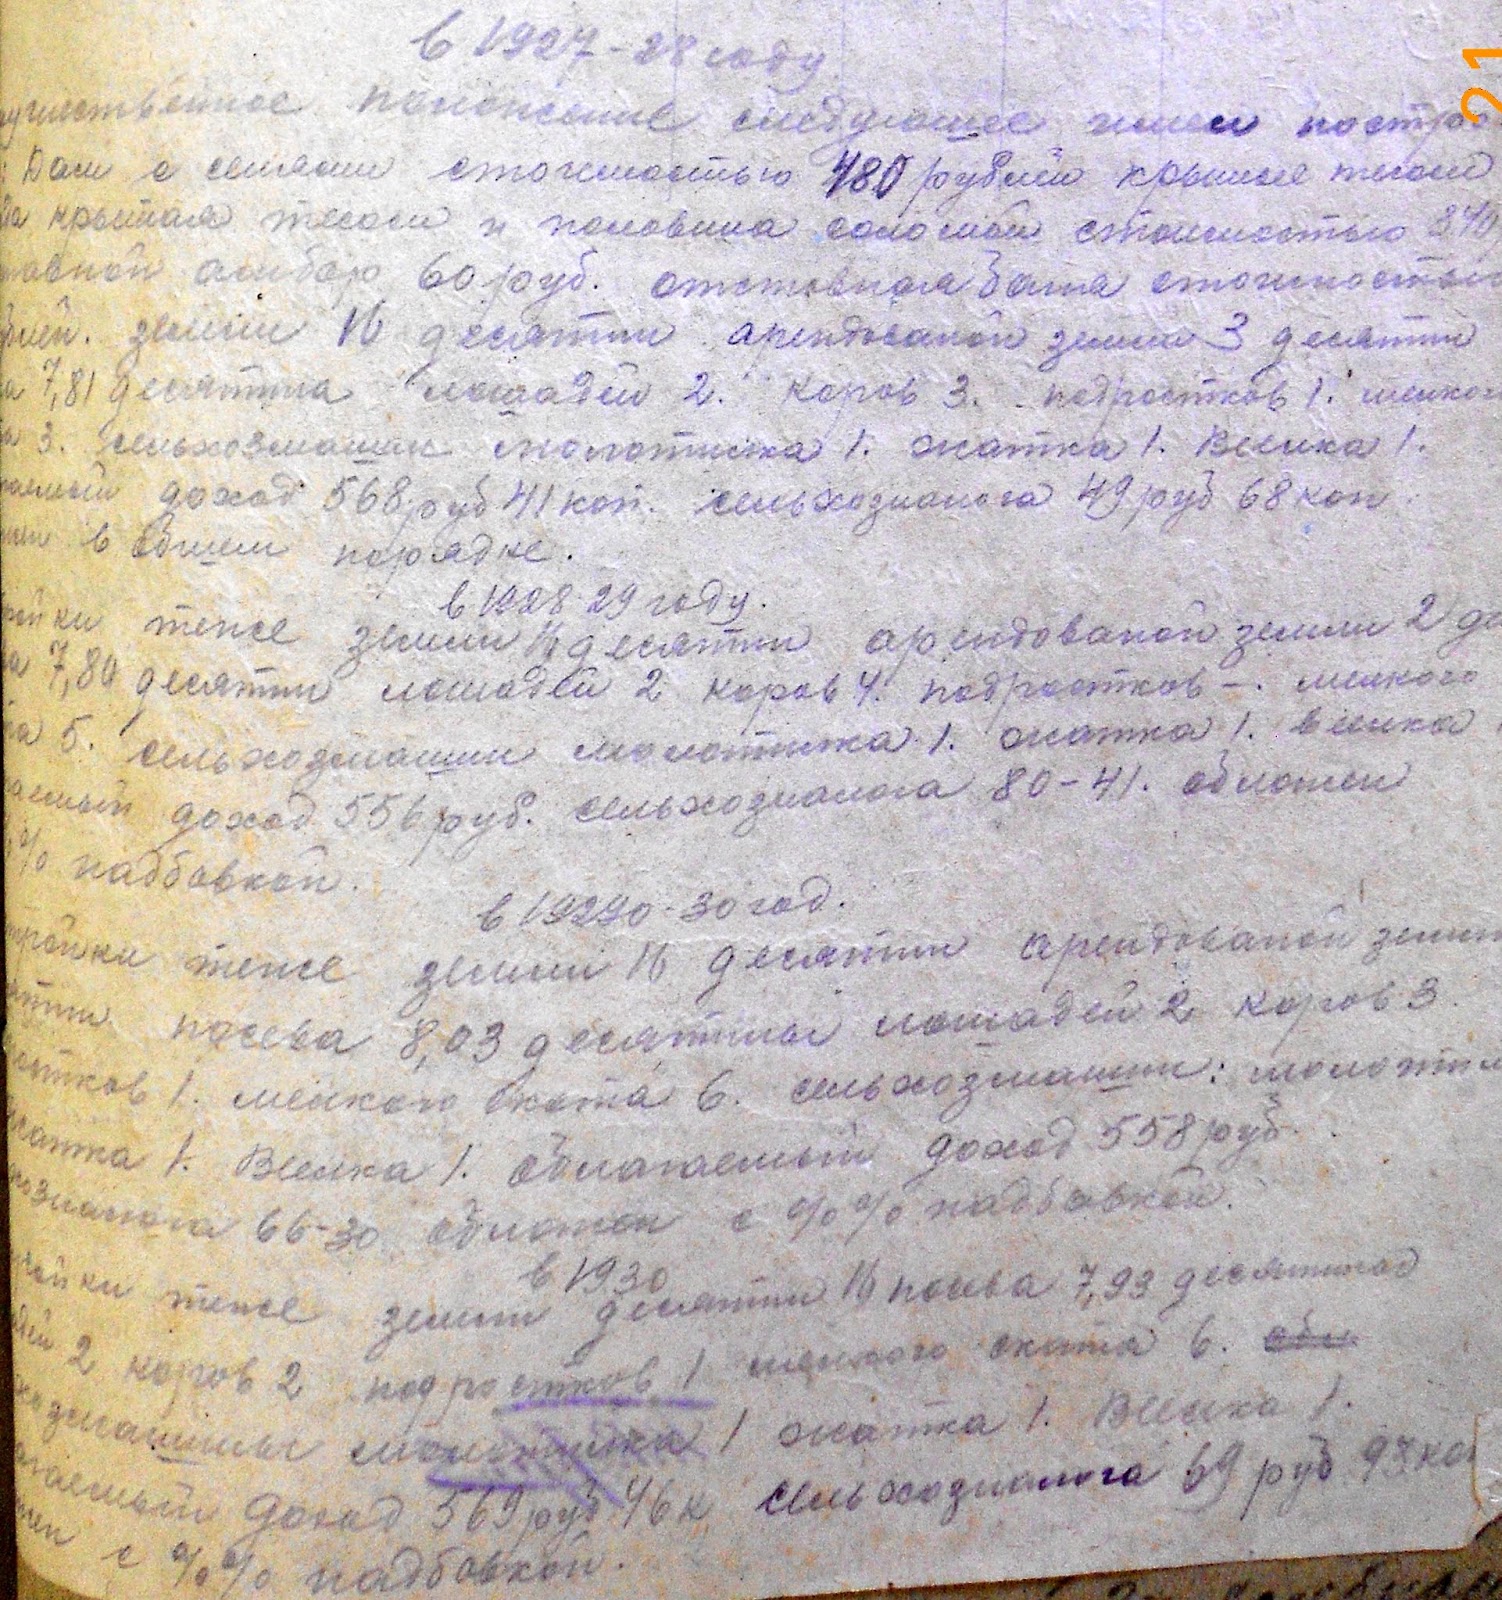 21
в 1927-28 году
ущественное положение следующее имел постро
: Дом с сенями стоимостью 480 рублей крытые тесом
крытая тесом и половина соломой стоимостью 840
амбар 60 руб. отстовная баня стоимостью
блей. земли 16 десятин арендованой земли 3 десятин
а 7,81 десятина лошадей 2. коров 3. подростков 1. мелкого
та 3. сельхозмашин молотилка 1. жатка 1. Веелка 1.
гаемый доход 568 руб 41 коп. сельхозналога 49 руб 68 коп.
жен в общем порядке.
в 1928-29 году.
ойки теже земли 16 десятин арендованой земли 2 де
ва 7,80 десятин лошадей 2 коров 4. подростков -. мелкого
та 5. сельхозмашин молотилка 1. жатка 1. веелка
гаемый доход 556 руб. сельхозналога 80-41. обложен
% надбавкой.
в 19290-30 год.
тройки теже земли 16 десятин арендованой земли
ятин посева 8,03 десятины лошадей 2 коров 3.
остков 1. мелкого скота 6. сельхозмашин: молотил
жатка 1. Веелка 1. облагаемый доход 558 руб.
хозналога 66-30 обложен с %% надбавкой.
в 1930
ройки теже земли десятин 16 посева 7,93 десятинов
адей 2 коров 2 подростков 1 мелкого скота 6. обл
хозмашины молотилка 1 жатка 1. Веелка 1.
агаемый доход 569 руб 46 к сельхозналога 69 руб 97 коп
жен с %% надбавкой.